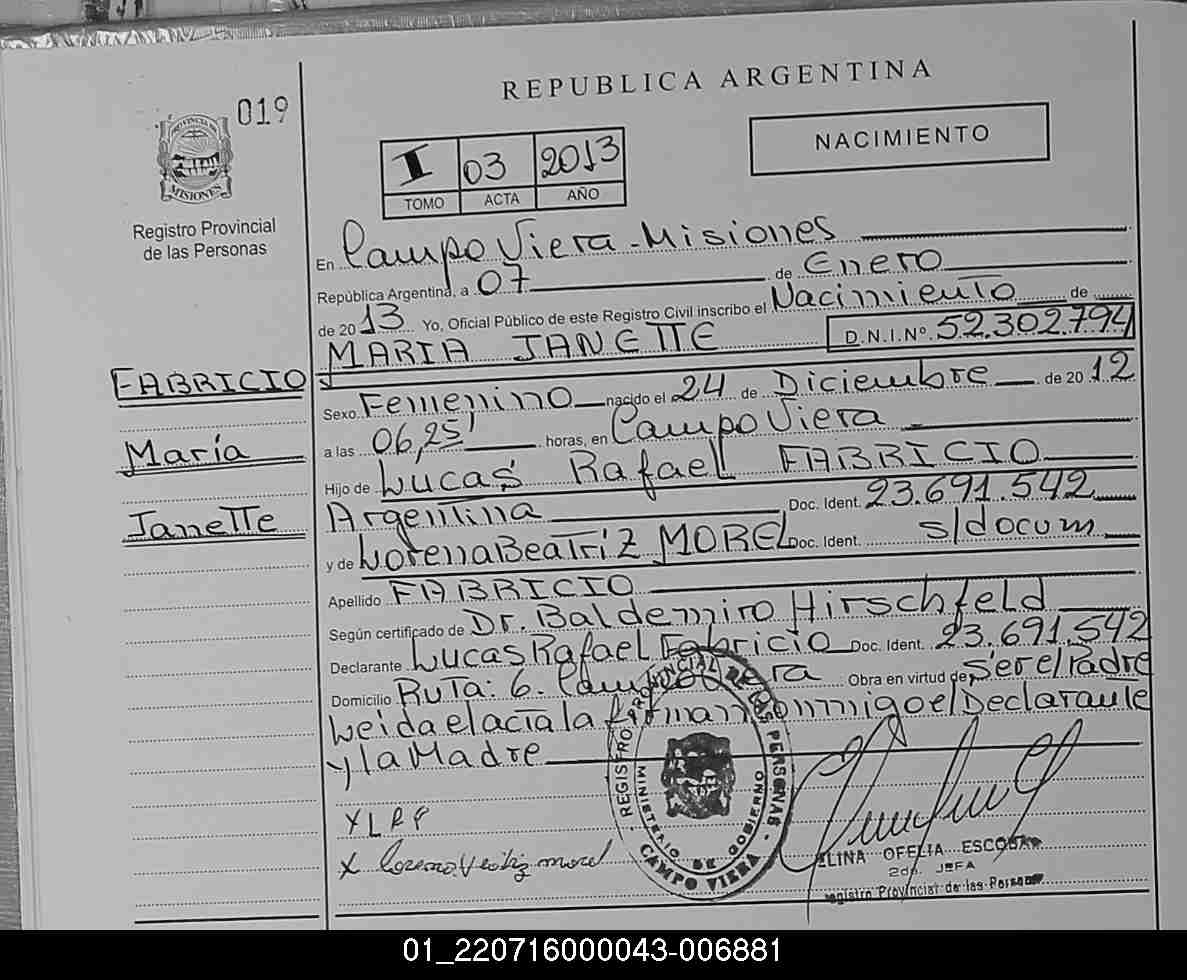 REPUBLICA ARGENTINA
019
PROVINCIA DE MISIONES
Registro Provincial
de las Personas
I 03 2013
TOMO ACTA AÑO
NACIMIENTO
En Campo Viera - Misiones
República Argentina, a 07 de Enero
de 2013 Yo, Oficial Público de este Registro Civil inscribo el Nacimiento de
MARIA JANETTE D.N.I.Nº 52.302.794
FABRICIO
María
Janette
Sexo Femenino nacido el 24 de Diciembre de 2012
a las 06,25' horas, en Campo Viera
Hijo de Lucas Rafael FABRICIO
Argentina Doc. Ident. 23.691.542
y de Lorena Beatriz MOREL Doc. Ident. s/docum
Apellido FABRICIO
Según certificado de Dr. Baldemiro Hirschfeld
Declarante Lucas Rafael Fabricio Doc. Ident. 23.691.542
Domicilio Ruta: 6. Campo Viera Obra en virtud de ser el Padre
Leida el acta la firman conmigo el Declarante
y la Madre
X L R F
X Lorena Veatriz morel
REGISTRO PROVINCIAL DE LAS PERSONAS
MINISTERIO DE GOBIERNO
CAMPO VIERA
ELINA OFELIA ESCOBAR
2da. JEFA
Registro Provincial de las Personas
01_220716000043-006881